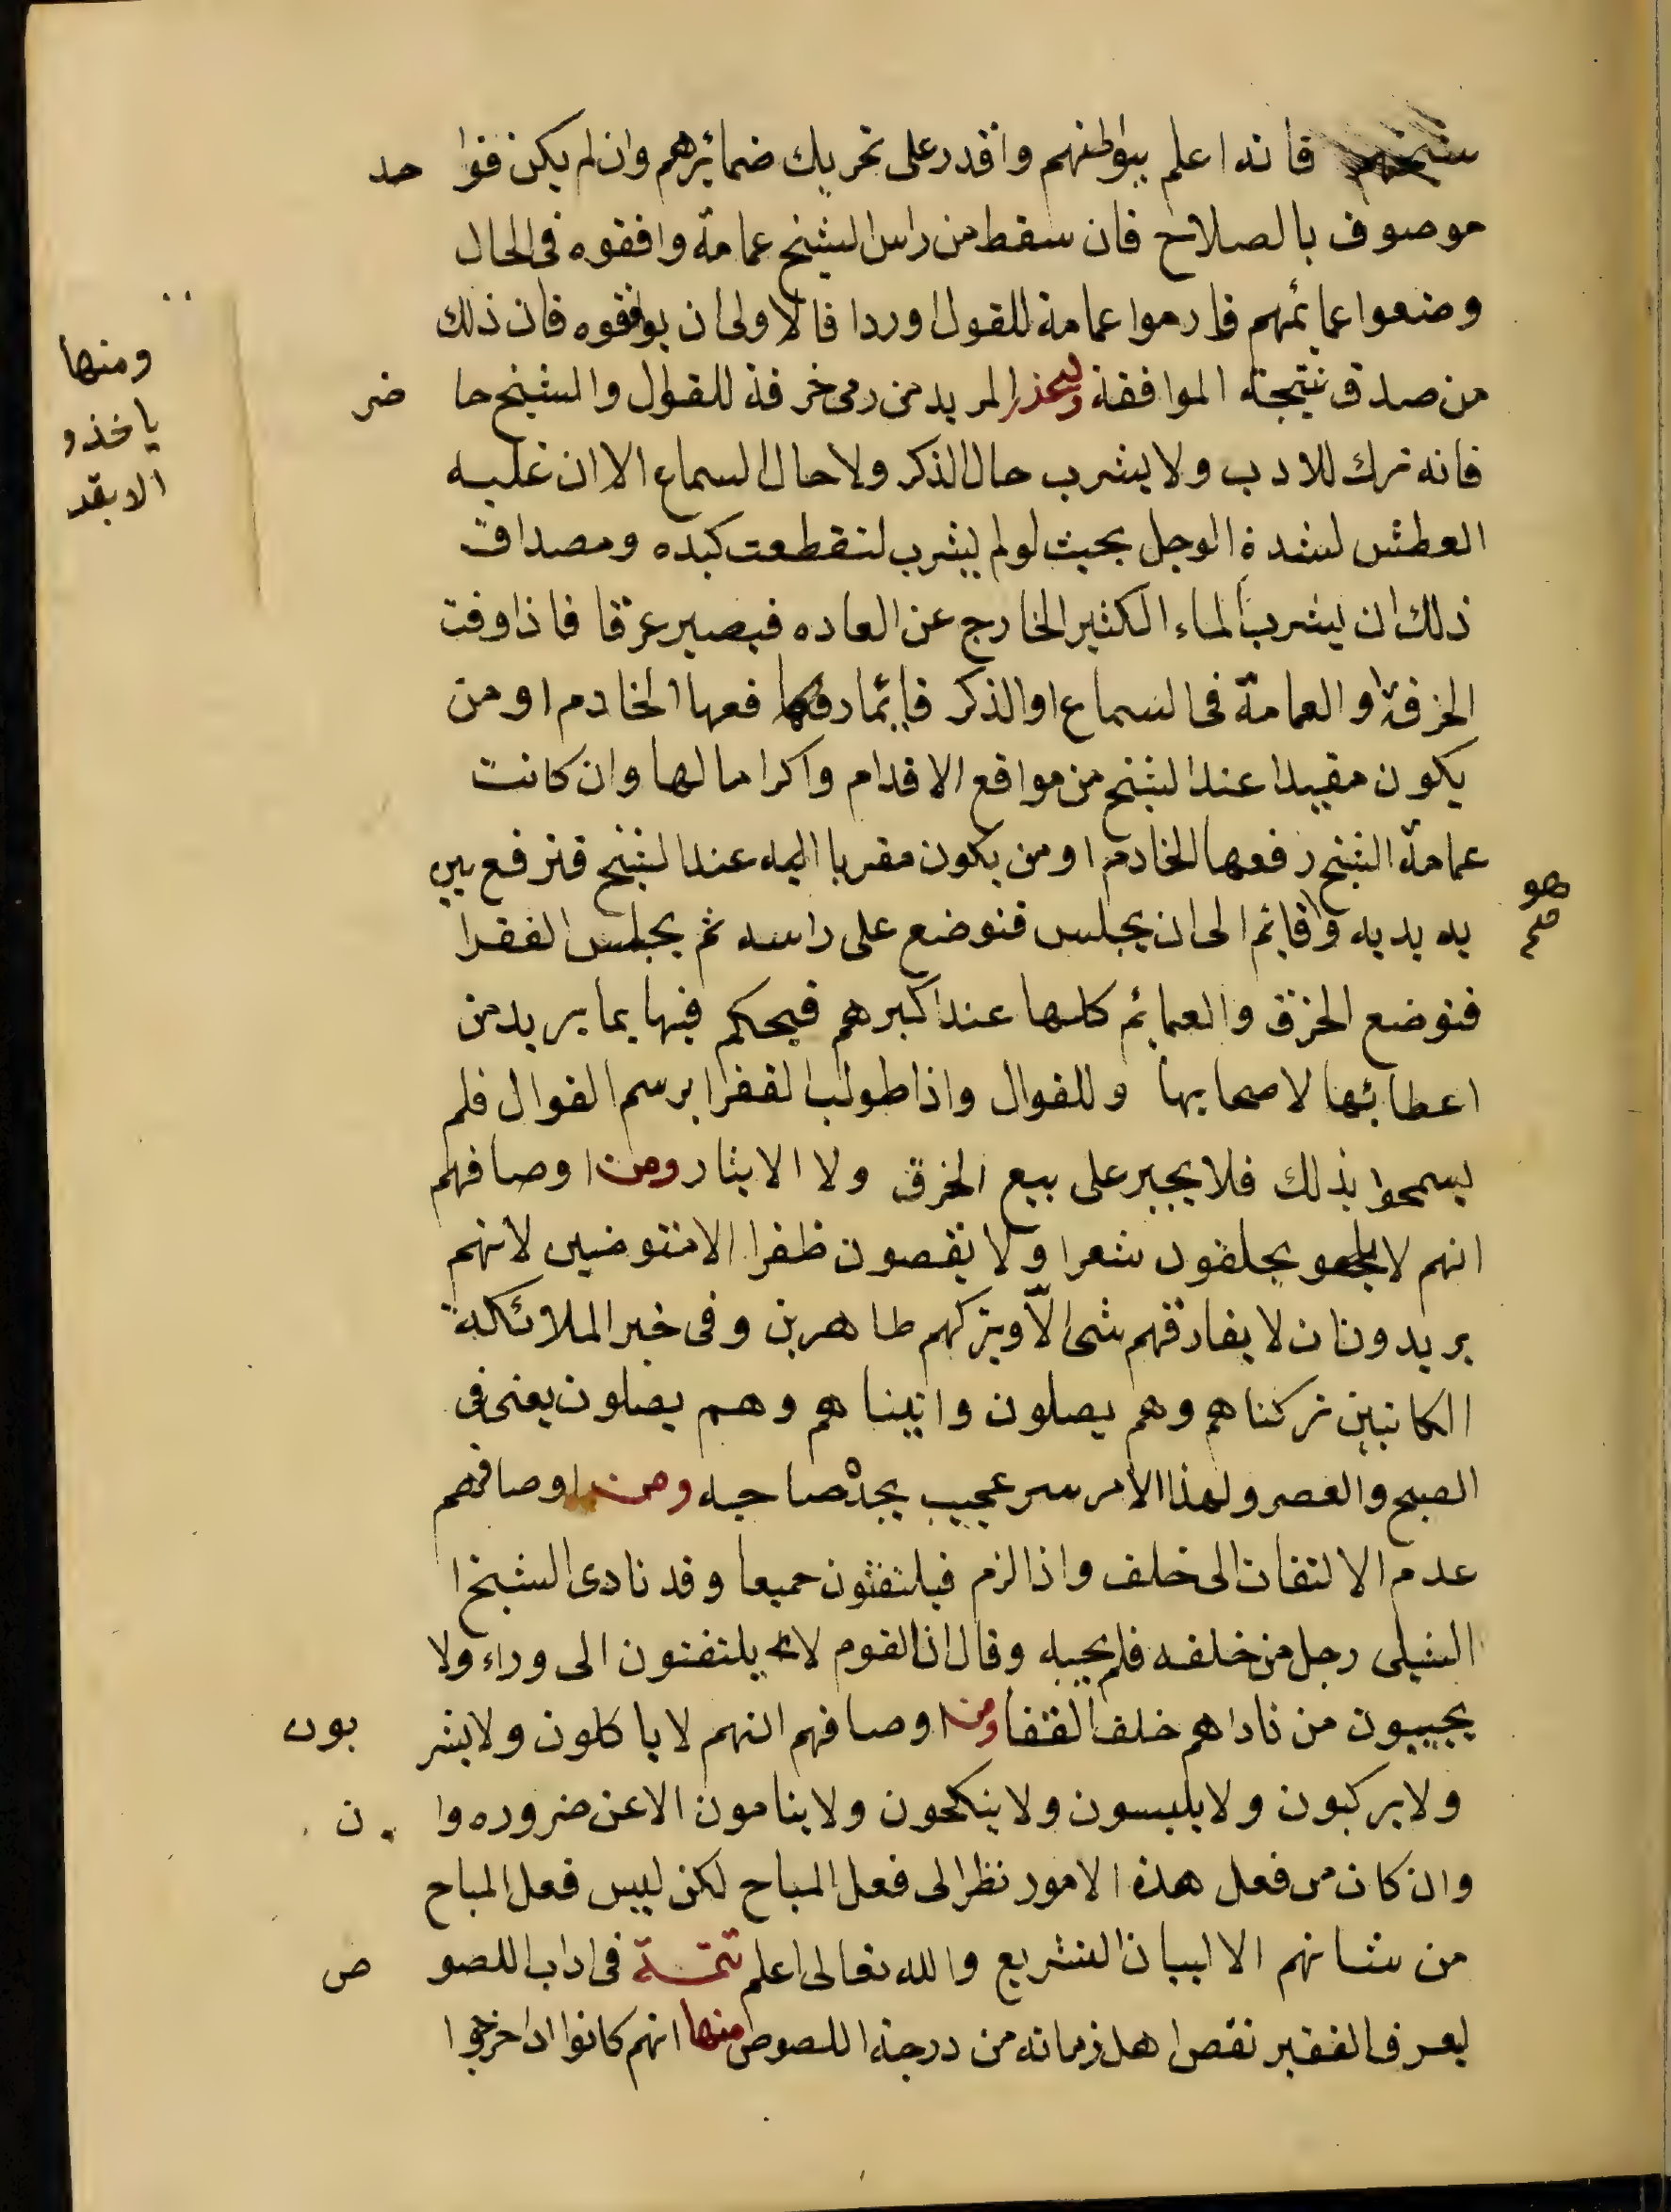 فانه اعلم ببواطنهم واقدر على تحريك ضمائرهم وان لم يكن فقوا حد
موصوف بالصلاح فان سقط من راس الشيخ عمامة وافقوه فى الحال
وضعوا عمائمهم فارموا عمامة للقول اوردا فالاولى ان يوافقوه فان ذلك
من صدق نتيجة الموافقة وليحذر المريد من رمى خرقة للقوال والشيخ حا ضر
فانه ترك للادب ولا يشرب حال الذكر ولا حال السماع الا ان غلبه
العطش لشدة الوجل بحيث لو لم يشرب لتقطعت كبده ومصداق
ذلك ان يشرب الماء الكثير الخارج عن العاده فيصير عرقا فاذا وقت
الخرقة او العمامة فى السماع او الذكر فانما رفعها الخادم او من
يكون مقيدا عند الشيخ من مواقع الاقدام واكراما لها وان كانت
عمامة الشيخ رفعها الخادم او من يكون مقربا اليه عند الشيخ فترفع بين
يديه وقائم الى ان يجلس فتوضع على راسه ثم يجلس الفقرا
هو
فتوضع الخرق والعمائم كلها عند اكبرهم فيحكم فيها بما يريد من
اعطائها لاصحابها وللقوال واذا طولب الفقرا برسم القوال فلم
يسمحوا بذلك فلا يجبر على بيع الخرق ولا الايثار ومن اوصافهم
انهم لا يحلقون شعرا ولا يقصون ظفرا الا متوضين لانهم
يريدون ان لا يفارقهم شى الا ويتركهم طاهرين وفى خبر الملائكة
الكاتبين تركناهم وهم يصلون واتيناهم وهم يصلون يعنى فى
الصبح والعصر ولهذا الامر سر عجيب يجده صاحبه ومن اوصافهم
عدم الالتفات الى خلف واذا لزم فيلتفتون جميعا وقد نادى الشيخ ا
الشبلى رجل من خلفه فلم يجبه وقال ان القوم لا يلتفتون الى وراء ولا
يجيبون من ناداهم خلف القفا ومن اوصافهم انهم لا ياكلون ولا يشر بون
ولا يركبون ولا يلبسون ولا ينكحون ولا ينامون الا عن ضروره وا ن
وان كان من فعل هذه الامور نظرا لى فعل المباح لكن ليس فعل المباح
من شانهم الا لبيان التشريع والله تعالى اعلم تتمة فى اداب اللصو ص
ليعرف الفقير نقص اهل زمانه من درجة اللصوص منها انهم كانوا اذا خرجوا
ومنها
ياخذو